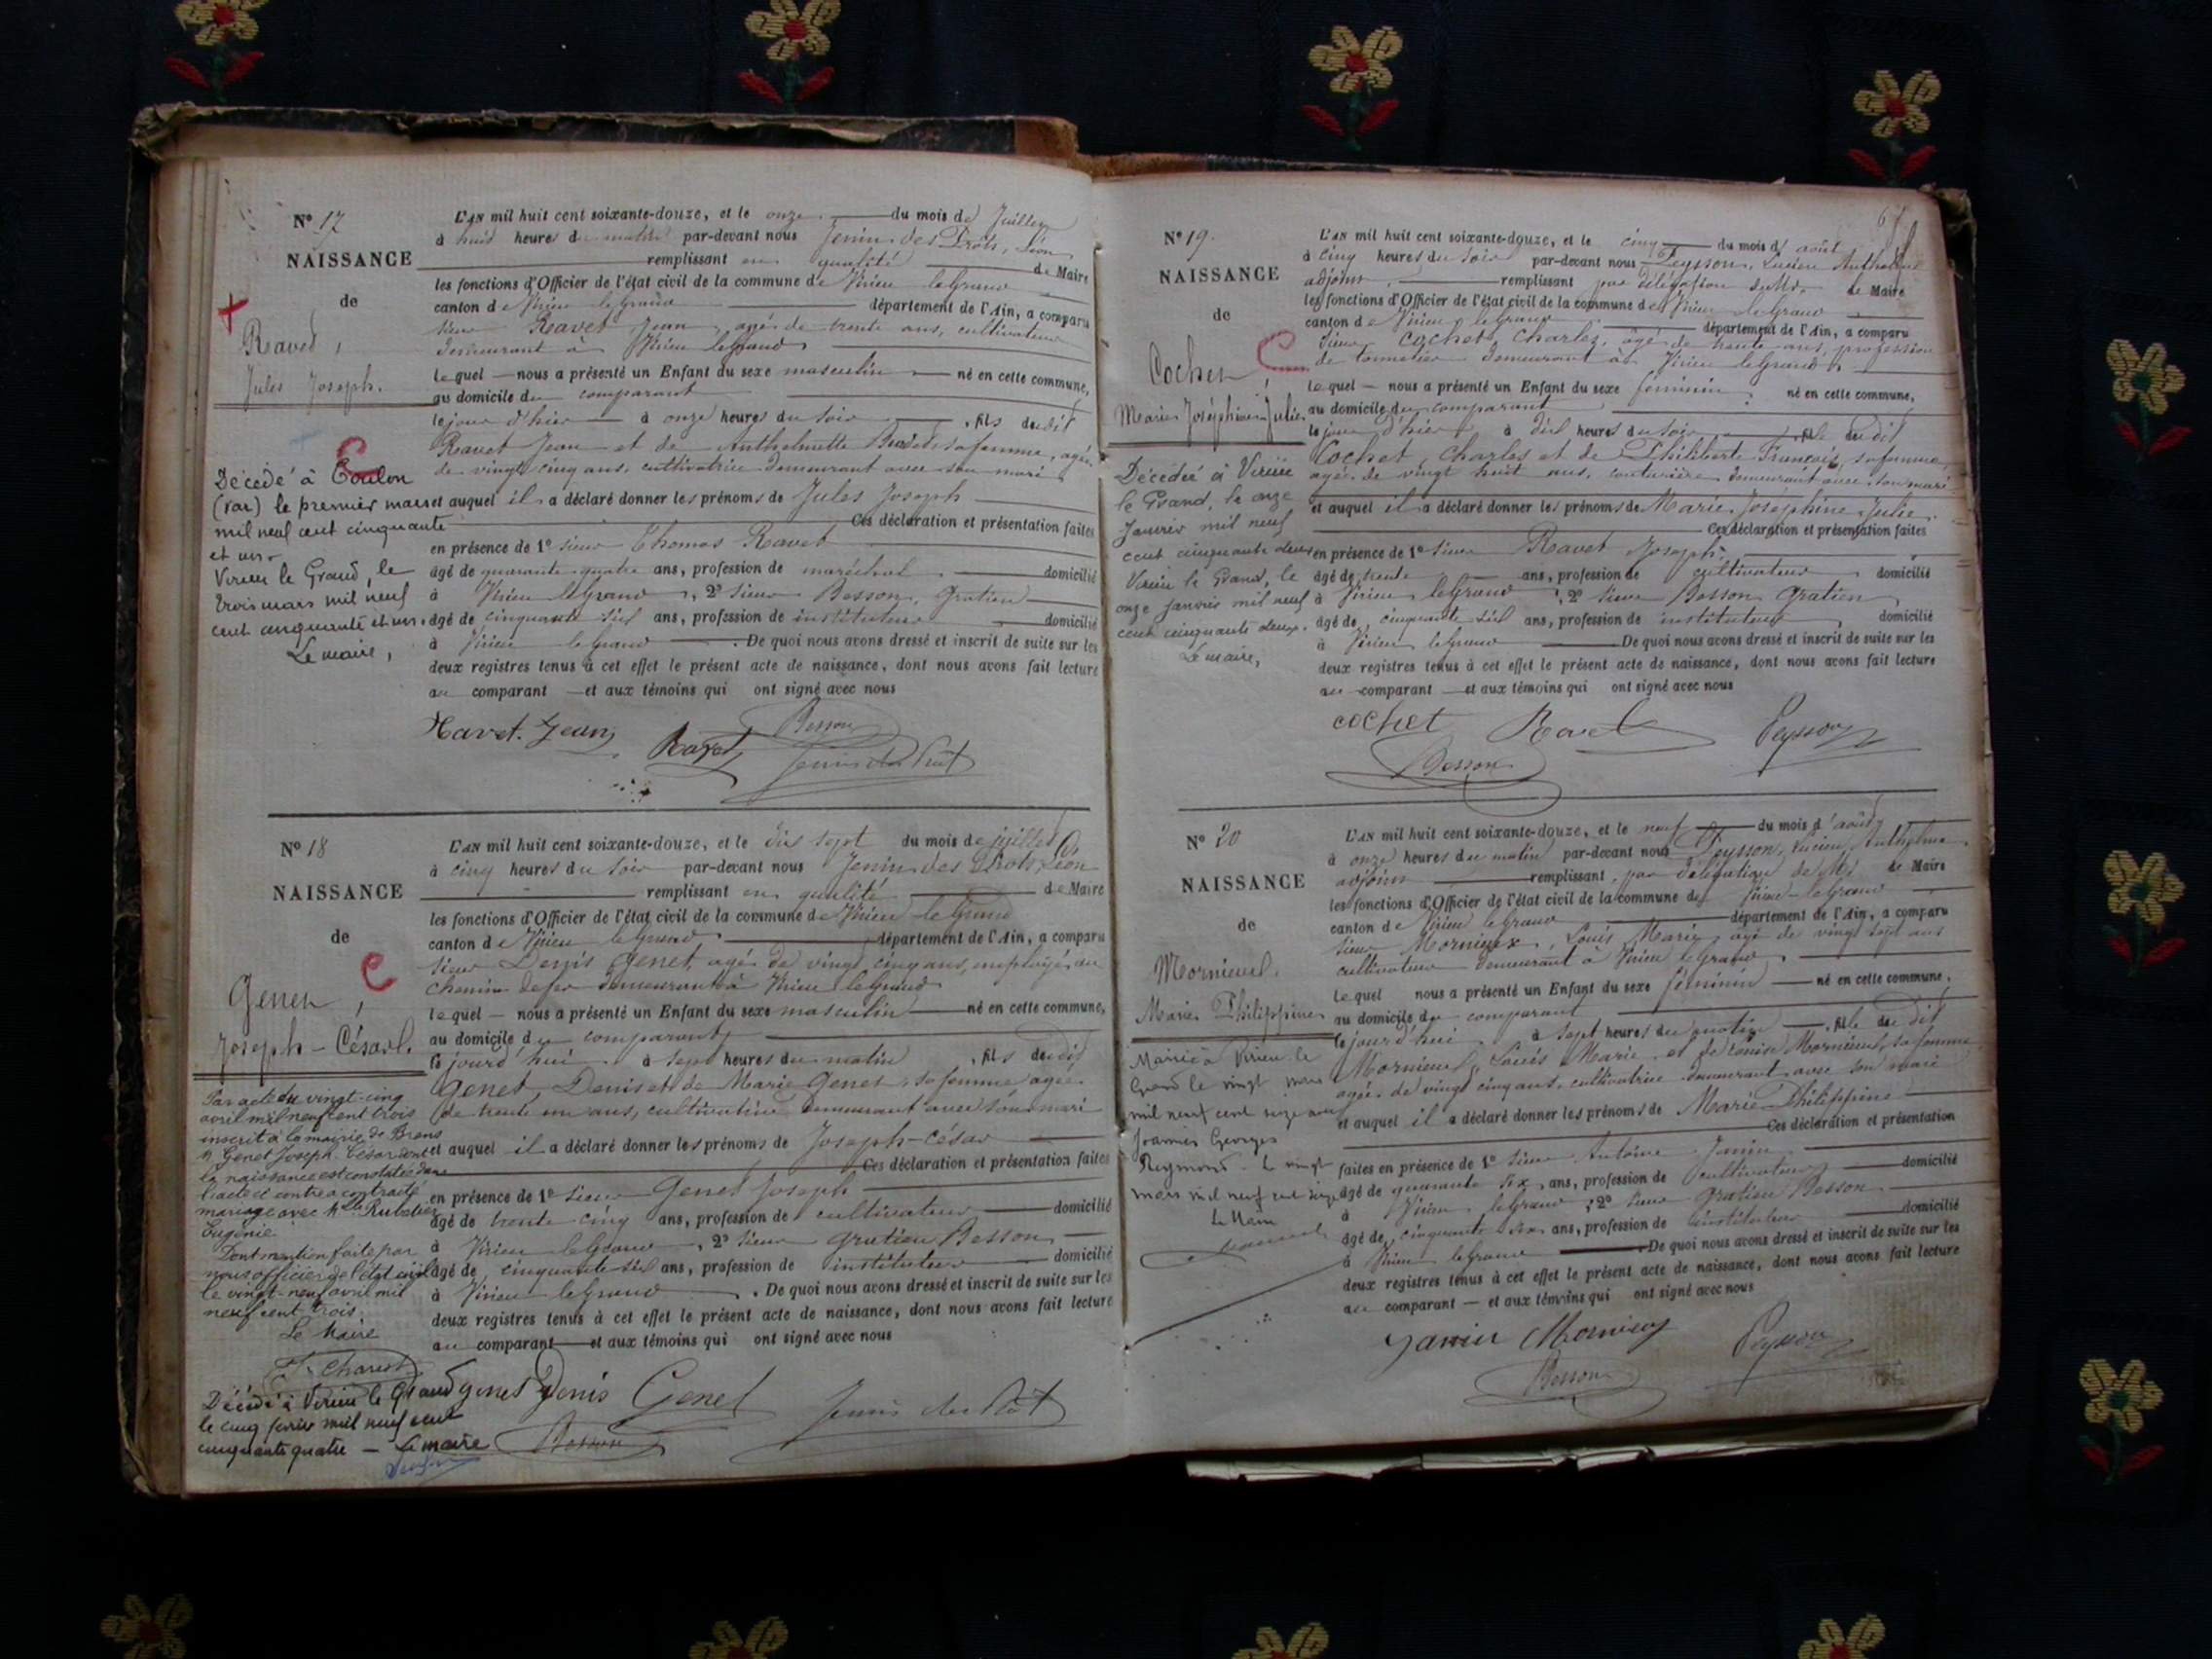 Nº 17
NAISSANCE
de
Ravet,
Jules Joseph.
Décédé à Toulon
(Var) le premier mars
mil neuf cent cinquante
et un.
Virieu le Grand, le
trois mars mil neuf
cent cinquante et un.
Le maire,
L'AN mil huit cent soixante-douze, et le onze du mois de Juillet
à huit heures du matin par-devant nous Jenin des Prôts, Léon
remplissant en qualité de Maire
les fonctions d'Officier de l'état civil de la commune de Virieu le Grand
canton de Virieu le Grand département de l'Ain, a comparu
sieur Ravet Jean, agé de trente ans, cultivateur
demeurant à Virieu le Grand
lequel nous a présenté un Enfant du sexe masculin né en cette commune,
au domicile du comparant
le jour d'hier à onze heures du soir, fils dudit
Ravet Jean et de Anthelmette sa femme, agée
de vingt cinq ans, cultivatrice demeurant avec son mari
et auquel il a déclaré donner les prénoms de Jules Joseph
Ces déclaration et présentation faites
en présence de 1º sieur Thomas Ravet
âgé de quarante quatre ans, profession de maréchal domicilié
à Virieu le Grand, 2º sieur Besson, Gratien
âgé de cinquante six ans, profession de instituteur domicilié
à Virieu le Grand. De quoi nous avons dressé et inscrit de suite sur les
deux registres tenus à cet effet le présent acte de naissance, dont nous avons fait lecture
au comparant et aux témoins qui ont signé avec nous
Ravet Jean Ravet Besson
Jenin des Prôt
Nº 18
NAISSANCE
de
Genet,
Joseph-César.
Par acte du vingt-cinq
avril mil neuf cent trois
inscrit à la mairie de Brens
Mr Genet Joseph-César dont
la naissance est constatée dans
l'acte ci contre a contracté
mariage avec Mlle
Eugénie.
Dont mention faite par
nous officier de l'état civil
le vingt-neuf avril mil
neuf cent trois.
Le Maire
Décédé à Virieu le Grand
le cinq février mil neuf cent
cinquante quatre — Le maire
L'AN mil huit cent soixante-douze, et le dix sept du mois de juillet
à cinq heures du soir par-devant nous Jenin des Prôts, Léon
remplissant en qualité de Maire
les fonctions d'Officier de l'état civil de la commune de Virieu le Grand
canton de Virieu le Grand département de l'Ain, a comparu
sieur Denis Genet, agé de vingt cinq ans, employé au
chemin de fer demeurant à Virieu le Grand
lequel nous a présenté un Enfant du sexe masculin né en cette commune,
au domicile du comparant,
le jourd'hui à sept heures du matin, fils dudit
Genet, Denis et de Marie Genet, sa femme agée
de trente un ans, cultivatrice demeurant avec son mari
et auquel il a déclaré donner les prénoms de Joseph-César
Ces déclaration et présentation faites
en présence de 1º sieur Genet Joseph
âgé de trente cinq ans, profession de cultivateur domicilié
à Virieu le Grand, 2º sieur Gratien Besson
âgé de cinquante six ans, profession de instituteur domicilié
à Virieu le Grand. De quoi nous avons dressé et inscrit de suite sur les
deux registres tenus à cet effet le présent acte de naissance, dont nous avons fait lecture
au comparant et aux témoins qui ont signé avec nous
genet Denis Genet Jenin des Prôt
Besson
Nº 19
NAISSANCE
de
Cochet,
Marie Joséphine Julie
Décédée à Virieu
le Grand, le onze
Janvier mil neuf
cent cinquante deux
Virieu le Grand, le
onze janvier mil neuf
cent cinquante deux.
Le maire,
L'AN mil huit cent soixante-douze, et le cinq du mois d'août
à cinq heures du soir par-devant nous Peysson, Lucien Anthelme
adjoint, remplissant par délégation de Mr le Maire
les fonctions d'Officier de l'état civil de la commune de Virieu le Grand
canton de Virieu le Grand département de l'Ain, a comparu
sieur Cochet, Charles, agé de trente ans, profession
de tonnelier demeurant à Virieu le Grand
lequel nous a présenté un Enfant du sexe féminin né en cette commune,
au domicile du comparant
le jour d'hier à dix heures du soir fille du dit
Cochet, Charles et de Philiberte François, sa femme,
agée de vingt huit ans, couturière demeurant avec son mari
et auquel il a déclaré donner les prénoms de Marie Joséphine Julie.
Ces déclaration et présentation faites
en présence de 1º sieur Ravet Joseph,
âgé de trente ans, profession de cultivateur domicilié
à Virieu le Grand, 2º sieur Besson Gratien,
âgé de cinquante six ans, profession de instituteur, domicilié
à Virieu le Grand De quoi nous avons dressé et inscrit de suite sur les
deux registres tenus à cet effet le présent acte de naissance, dont nous avons fait lecture
au comparant et aux témoins qui ont signé avec nous
cochet Ravet Peysson
Besson
Nº 20
NAISSANCE
de
Mornieux
Marie Philippine
Mariée à Virieu le
Grand le vingt mars
mil neuf cent seize avec
Joannès Georges
Reymond. Le vingt
mars mil neuf cent seize
Le Maire
L'AN mil huit cent soixante-douze, et le neuf du mois d'août
à onze heures du matin par-devant nous Peysson, Lucien Anthelme
adjoint remplissant par délégation de Mr le Maire
les fonctions d'Officier de l'état civil de la commune de Virieu-le Grand
canton de Virieu le Grand département de l'Ain, a comparu
sieur Mornieux, Louis Marie, agé de vingt sept ans
cultivateur demeurant à Virieu le Grand
lequel nous a présenté un Enfant du sexe féminin né en cette commune,
au domicile du comparant
le jourd'hui à sept heures du matin, fille du dit
Mornieux, Louis Marie et de Louise Mornieux, sa femme
agée de vingt cinq ans, cultivatrice demeurant avec son mari
et auquel il a déclaré donner les prénoms de Marie Philippine
Ces déclaration et présentation
faites en présence de 1º sieur Antoine Janin
âgé de quarante six ans, profession de cultivateur, domicilié
à Virieu le Grand, 2º sieur Gratien Besson
âgé de cinquante six ans, profession de instituteur domicilié
à Virieu le Grand. De quoi nous avons dressé et inscrit de suite sur les
deux registres tenus à cet effet le présent acte de naissance, dont nous avons fait lecture
au comparant — et aux témoins qui ont signé avec nous
Janin Mornieux Peysson
Besson